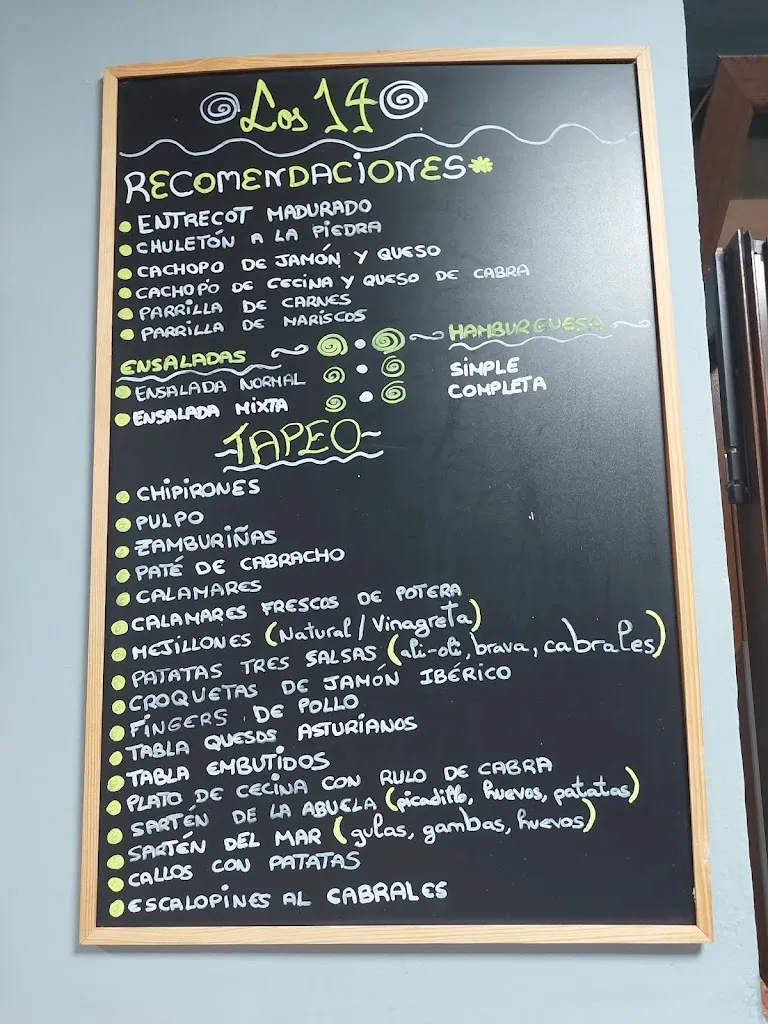 Los 14
RECOMENDACIONES*
ENTRECOT MADURADO
CHULETÓN A LA PIEDRA
CACHOPO DE JAMÓN Y QUESO
CACHOPO DE CECINA Y QUESO DE CABRA
PARRILLA DE CARNES
PARRILLA DE MARISCOS
ENSALADAS
ENSALADA NORMAL
ENSALADA MIXTA
HAMBURGUESA
SIMPLE
COMPLETA
TAPEO
CHIPIRONES
PULPO
ZAMBURIÑAS
PATÉ DE CABRACHO
CALAMARES
CALAMARES FRESCOS DE POTERA
MEJILLONES (Natural/Vinagreta)
PATATAS TRES SALSAS (ali-oli, brava, cabrales)
CROQUETAS DE JAMÓN IBÉRICO
FINGERS DE POLLO
TABLA QUESOS ASTURIANOS
TABLA EMBUTIDOS
PLATO DE CECINA CON RULO DE CABRA
SARTÉN DE LA ABUELA (picadillo, huevos, patatas)
SARTÉN DEL MAR (gulas, gambas, huevos)
CALLOS CON PATATAS
ESCALOPINES AL CABRALES